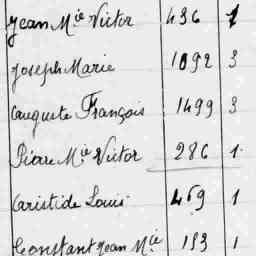 Jean Mie Victor 436 1
Joseph Marie 1092 3
Auguste François 1499 3
Pierre Mie Victor 286 1.
Aristide Louis 469 1
Constant Jean Mie 153 1